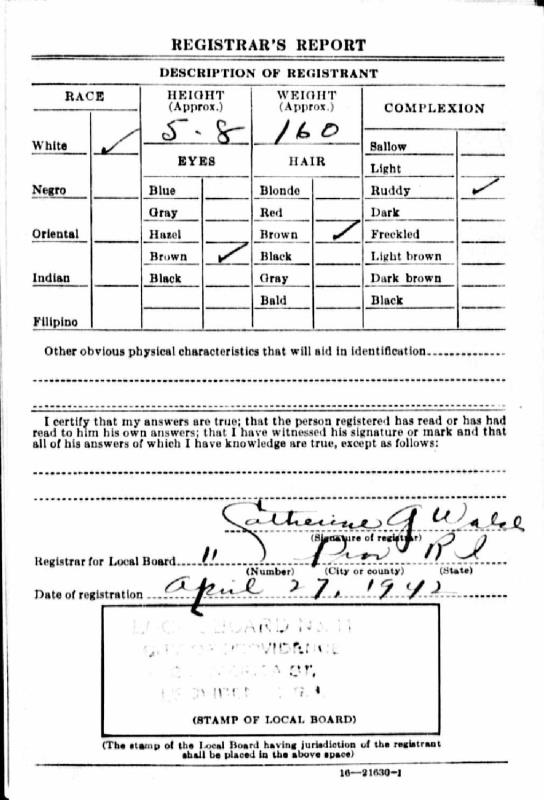 REGISTRAR'S REPORT
DESCRIPTION OF REGISTRANT
RACE
HEIGHT (Approx.)
WEIGHT (Approx.)
COMPLEXION
5-8
160
White ✓
Sallow
EYES
HAIR
Light
Negro
Blue
Blonde
Ruddy ✓
Gray
Red
Dark
Oriental
Hazel
Brown ✓
Freckled
Brown ✓
Black
Light brown
Indian
Black
Gray
Dark brown
Bald
Black
Filipino
Other obvious physical characteristics that will aid in identification
I certify that my answers are true; that the person registered has read or has had
read to him his own answers; that I have witnessed his signature or mark and that
all of his answers of which I have knowledge are true, except as follows:
Catherine G Walsh
(Signature of registrar)
Registrar for Local Board 11 Prov R I
(Number) (City or county) (State)
Date of registration April 27, 1942
LOCAL BOARD No. 11
CITY OF PROVIDENCE
ST.
(STAMP OF LOCAL BOARD)
(The stamp of the Local Board having jurisdiction of the registrant
shall be placed in the above space)
16—21630-1